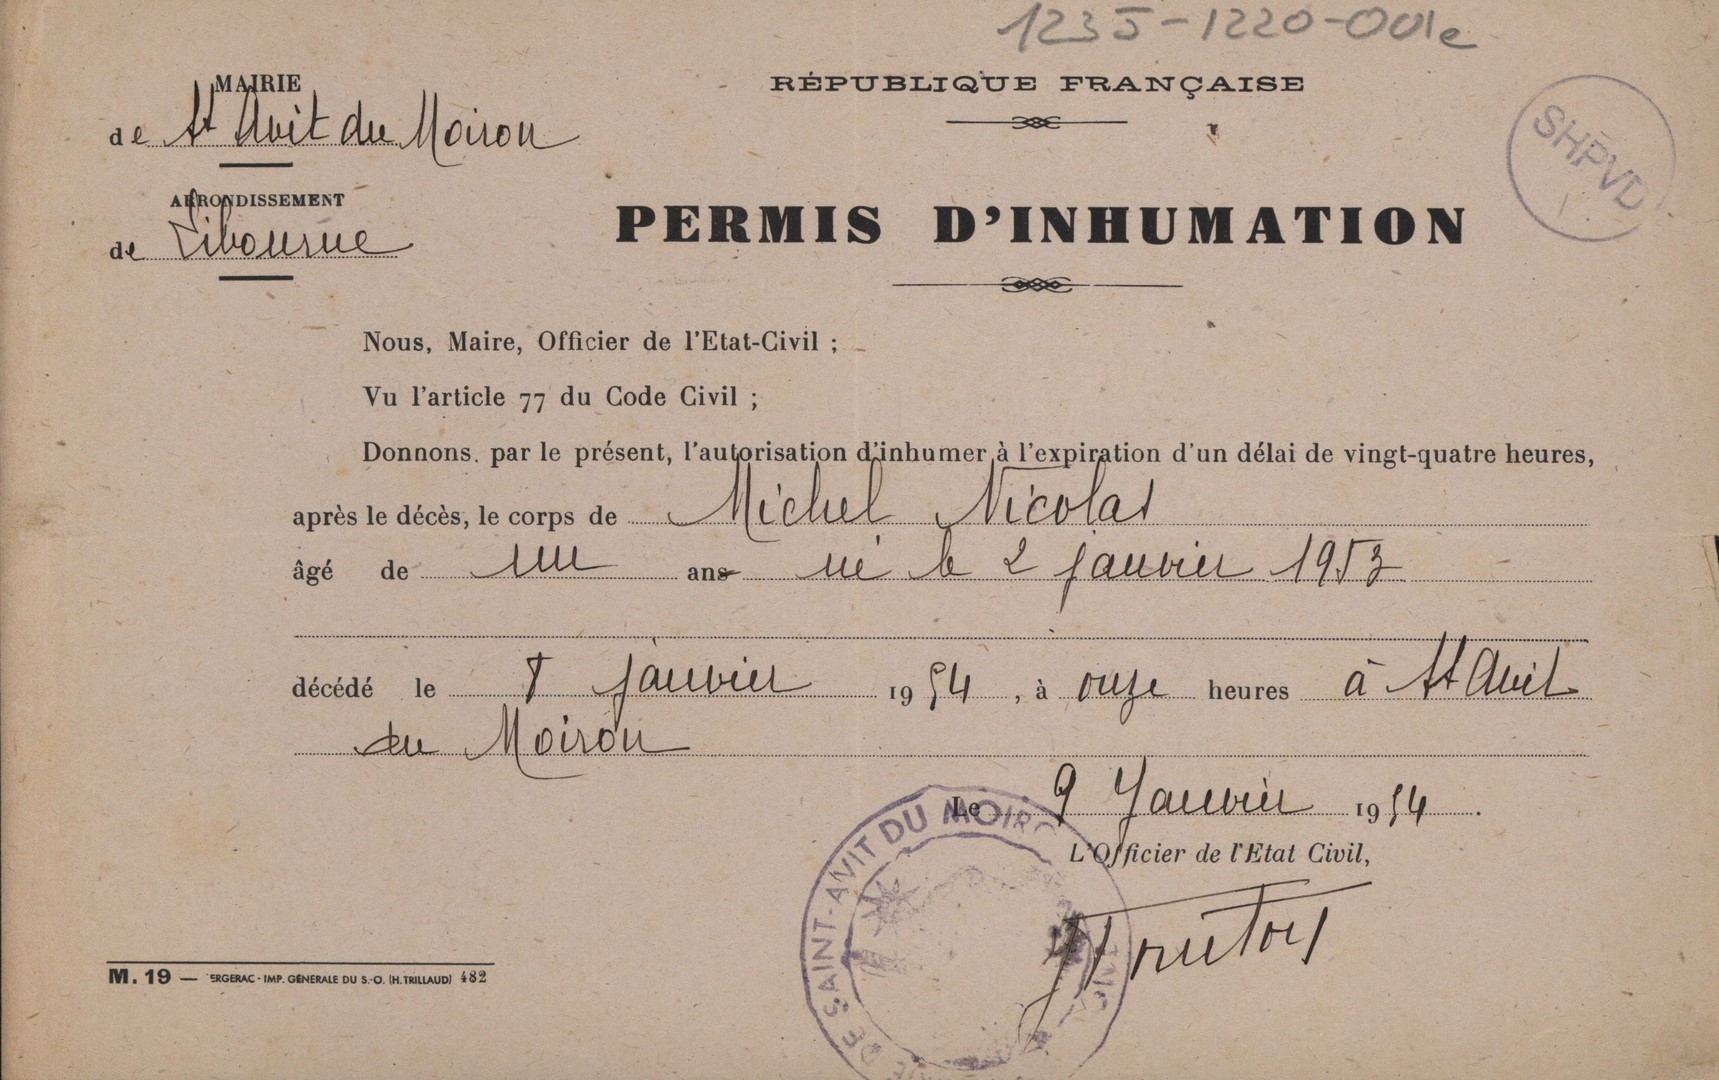 1235-1220-001e
MAIRIE
de St Avit du Moiron
ARRONDISSEMENT
de Libourne
RÉPUBLIQUE FRANÇAISE
SHPVD
PERMIS D'INHUMATION
Nous, Maire, Officier de l'Etat-Civil ;
Vu l'article 77 du Code Civil ;
Donnons par le présent, l'autorisation d'inhumer à l'expiration d'un délai de vingt-quatre heures,
après le décès, le corps de Michel Nicolas
âgé de un ans né le 2 janvier 1953
décédé le janvier 1954, à onze heures à St Avit
du Moiron
Le 9 Janvier 1954.
L'Officier de l'Etat Civil,
DE SAINT-AVIT DU MOIRO
M. 19 — ERGERAC - IMP. GÉNÉRALE DU S.-O. (H. TRILLAUD) 482